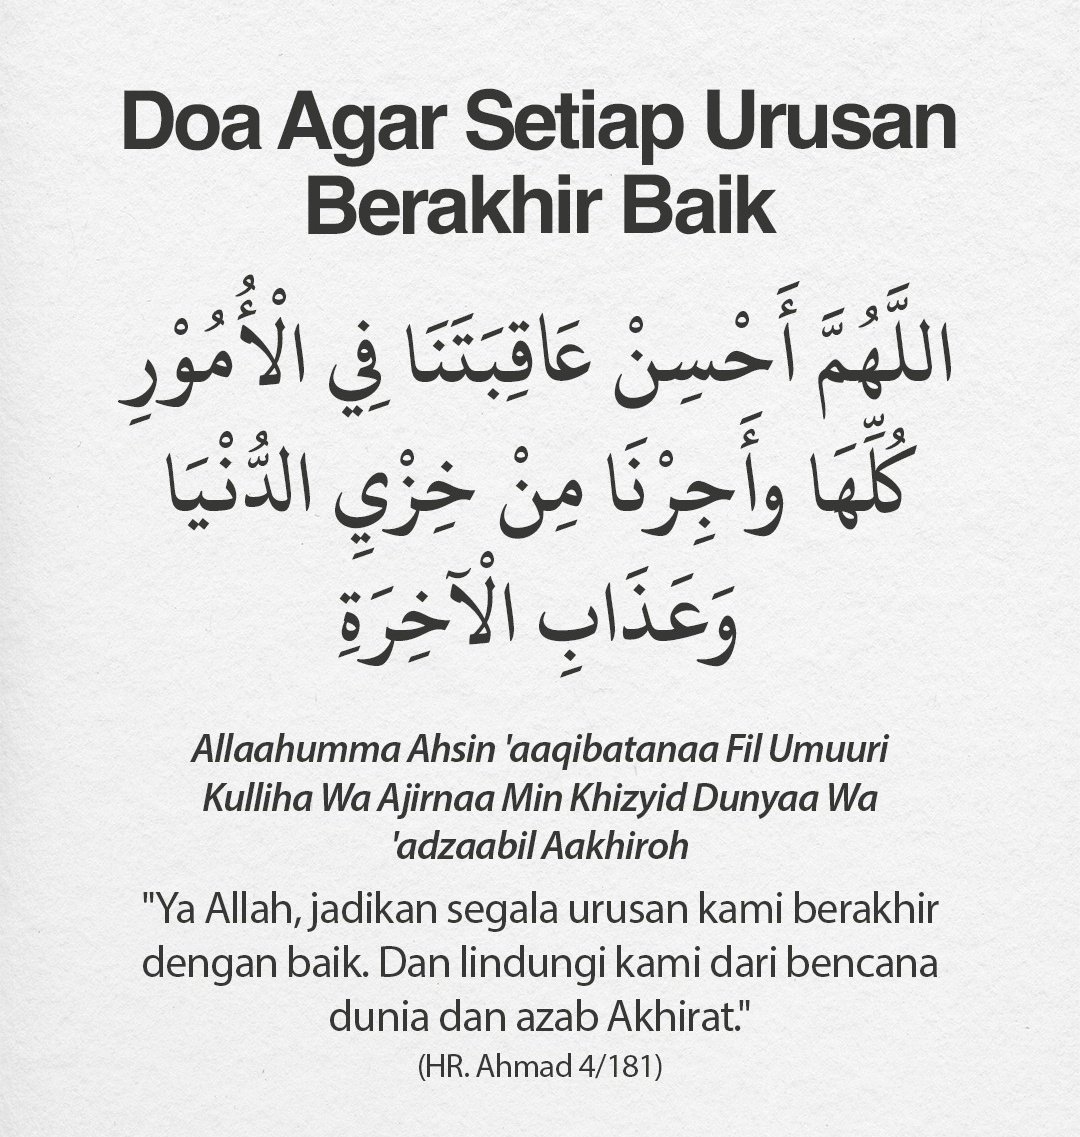 Doa Agar Setiap Urusan
Berakhir Baik
اللَّهُمَّ أَحْسِنْ عَاقِبَتَنَا فِي الْأُمُوْرِ
كُلِّهَا وأَجِرْنَا مِنْ خِزْيِ الدُّنْيَا
وَعَذَابِ الْآخِرَةِ
Allaahumma Ahsin 'aaqibatanaa Fil Umuuri
Kulliha Wa Ajirnaa Min Khizyid Dunyaa Wa
'adzaabil Aakhiroh
"Ya Allah, jadikan segala urusan kami berakhir
dengan baik. Dan lindungi kami dari bencana
dunia dan azab Akhirat."
(HR. Ahmad 4/181)